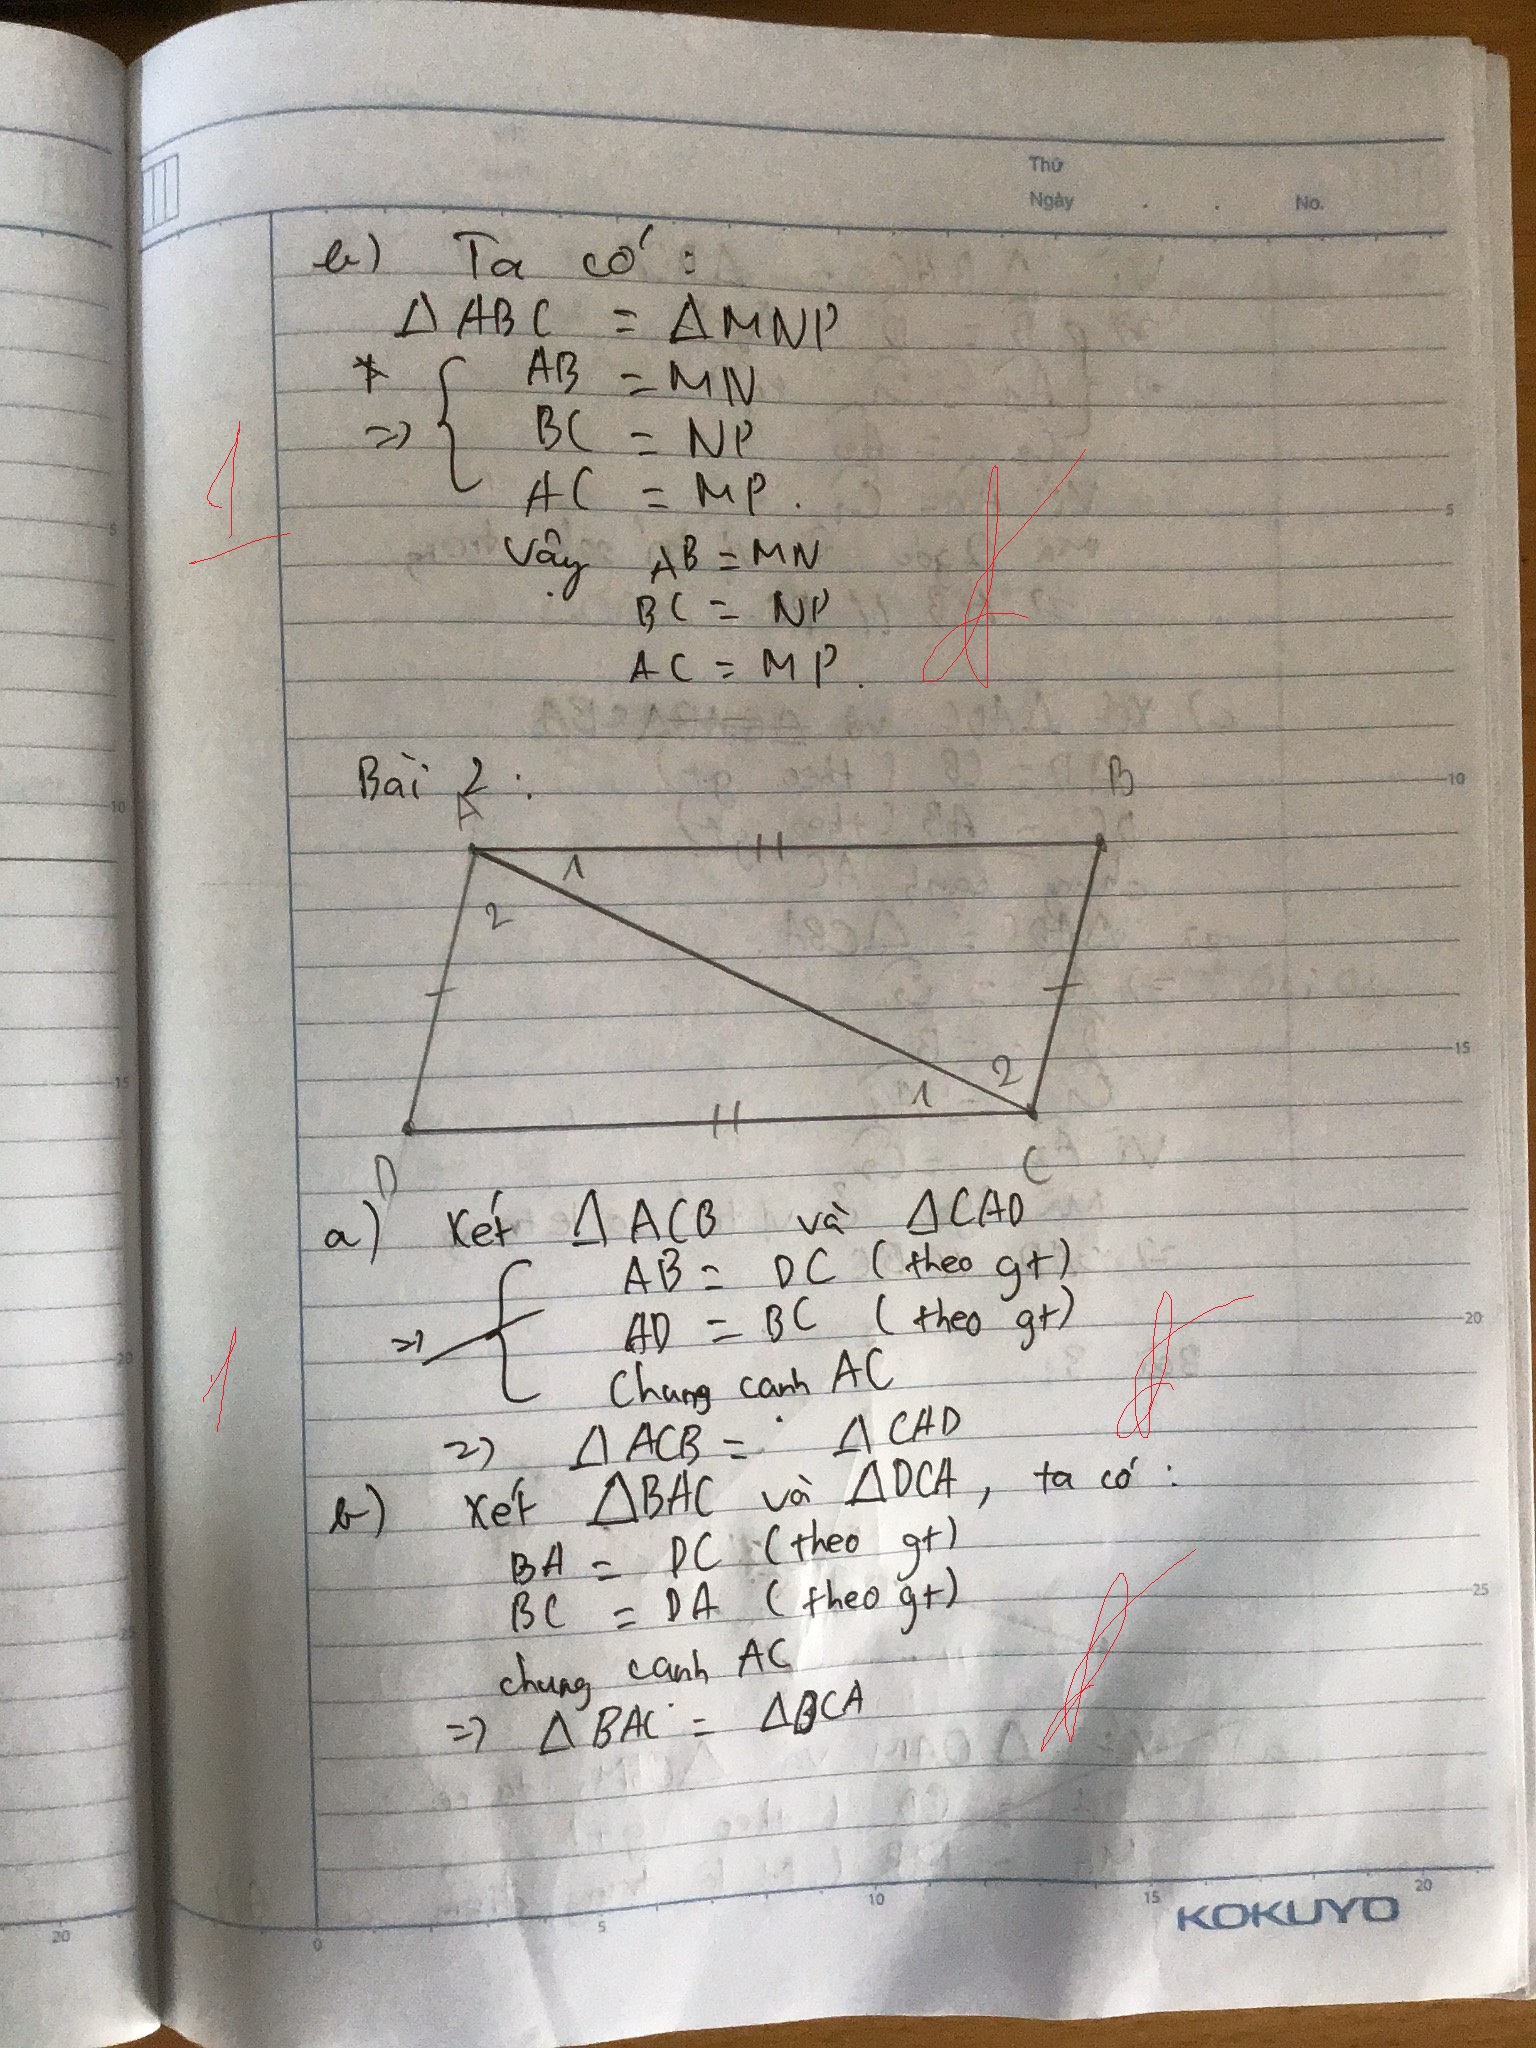 Thứ
Ngày . . No.
b) Ta có :
Δ ABC = Δ MNP
* AB = MN
=> { BC = NP
AC = MP .
Vậy AB = MN
BC = NP
AC = MP .
Bài 2 :
A B
1
2
2
1
D C
a) Xét Δ ACB và Δ CAD
AB = DC ( theo gt)
=> { AD = BC ( theo gt)
Chung cạnh AC
=> Δ ACB = Δ CAD
b) Xét Δ BAC và Δ DCA, ta có :
BA = DC ( theo gt)
BC = DA ( theo gt)
chung cạnh AC
=> Δ BAC = Δ DCA
1
1
5
10
15
20
25
0 5 10 15 20
KOKUYO
5
10
15
20
20